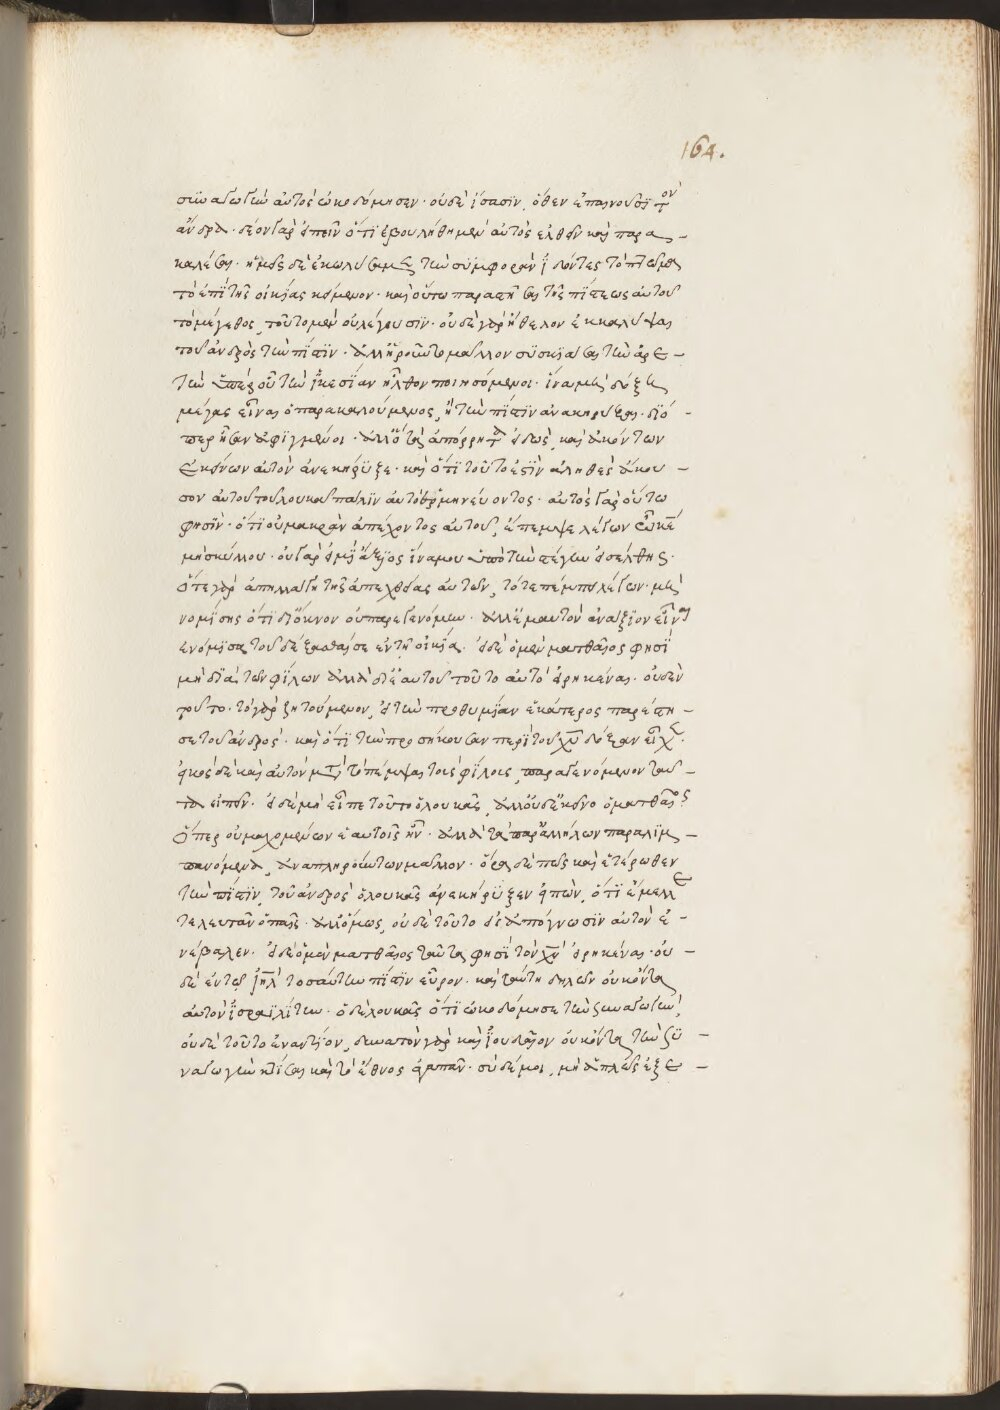 164.
συναγωγὴν αὐτὸς ὠκοδόμησεν· οὐδὲ ἴσασϊν, ὅθεν ἐπαινοῦσϊ τὸν
ἄνδρα· δέον γὰρ εἰπεῖν ὅτϊ ἐβουλήθη μὲν αὐτὸς ἐλθεῖν καὶ παρα –
καλέσαι· ἡμεῖς δὲ ἐκωλύσαμεν τὴν συμφορὰν ἰδόντες τὸ πτῶμα
τὸ ἐπὶ τῆς οἰκίας κείμενον· καὶ οὕτω παραστῆσαι τῆς πίστεως αὐτοῦ
τὸ μέγεθος, τοῦτο μὲν οὐ λέγουσϊν· οὐδὲ γὰρ ἤθελον ἐκκαλύψαι
τοῦ ἀνδρὸς τὴν πίστϊν·
τὴν ὑπὲρ οὗ τὴν ἱκεσίαν ἦλθον ποιησόμενοι· ἵνα μὴ δόξη
μέγας εἶναι ὁ παρακαλούμενος, ἢ τὴν πίστϊν ἀνακηρύξαι· δϊό –
περ ἦσαν ἀφϊγμένοι· ἀλλ' ὁ τὰ ἀπόρρητα εἰδὼς, καὶ ἀκόντων
ἐκείνων αὐτὸν ἀνεκήρϋξε· καὶ ὅτϊ τοῦτο ἐστὶν ἀληθὲς ἄκου –
σον αὐτοῦ τοῦ λουκᾶ πάλϊν αὐτὸ ἑρμηνεύοντος· αὐτὸς γὰρ οὕτω
φησϊν· ὅτϊ οὐ μακρὰν ἀπέχοντος αὐτοῦ, ἔπεμψε λέγων
μὴ σκύλλου· οὐ γάρ εἰμϊ ἄξϊος ἵνα μου ὑπὸ τὴν στέγην εἰσέλθης·
ὅτε γὰρ ἀπηλλάγη τῆς ἀπεχθείας αὐτῶν, τότε πέμπει λέγων· μὴ
νομίσης ὅτϊ δι' ὄκνον οὐ παρεγενόμην· ἀλλ' ἐμαυτὸν ἀνάξϊον εἶναι
ἐνόμϊσα τοῦ δέξασθαί σε ἐν τῆ οἰκία· εἰ δὲ ὁ μὲν ματθαῖος φησϊ
μὴ δϊὰ τῶν φίλων ἀλλὰ δι' ἑαυτοῦ τοῦτο αὐτὸ εἰρηκέναι· οὐδὲν
τοῦτο· τὸ γὰρ ζητούμενον, εἰ τὴν προθυμίαν ἑκάτερος παρέστη –
σε τοῦ ἀνδρός· καὶ ὅτϊ τὴν προσήκουσαν περὶ τοῦ χυ δόξαν εἶχεν·
εἰκὸς δὲ καὶ αὐτὸν μετὰ τὸ πέμψαι τοὺς φίλους, παραγενόμενον ταῦ –
τα εἰπεῖν· εἰ δὲ μὴ εἶπε τοῦτο ὁ λουκᾶς, ἀλλ' οὐδὲ ἐκεῖνο ὁ ματθαῖος
ὅπερ οὐ μαχομένων ἑαυτοῖς ἦν· ἀλλὰ τὰ παρ' ἀλλήλων παραλϊμ –
πανόμενα, ἀναπληρούντων μᾶλλον· ὅρα δὲ πῶς καὶ ἑτέρωθεν
τὴν πίστϊν τοῦ ἀνδρὸς ὁ λουκᾶς ἀνεκήρϋξεν εἰπὼν, ὅτϊ ἔμελλε
τελευτᾶν ὁ παῖς· ἀλλ' ὅμως, οὐδὲ τοῦτο εἰς ἀπόγνωσϊν αὐτὸν ἐ –
νέβαλεν· εἰ δὲ ὁ μὲν ματθαῖος ταῦτα φησϊ τὸν χν εἰρηκέναι· οὐ
δὲ ἐν τῶ ϊηλ τοσαύτην πίστϊν εὗρον· καὶ ταύτη δηλῶν οὐκ ὄντα
αὐτὸν ἰσραϊλίτην· ὁ δὲ λουκᾶς ὅτϊ ὠκοδόμησε τὴν συναγωγὴν,
οὐδὲ τοῦτο ἐναντίον, δυνατὸν γὰρ καὶ ἰουδαῖον οὐκ ὄντα τὴν σϋ –
ναγωγὴν κτίσαι καὶ τὸ ἔθνος ἀγαπᾶν· σὺ δέ μοι, μὴ ἁπλῶς ἐξε –